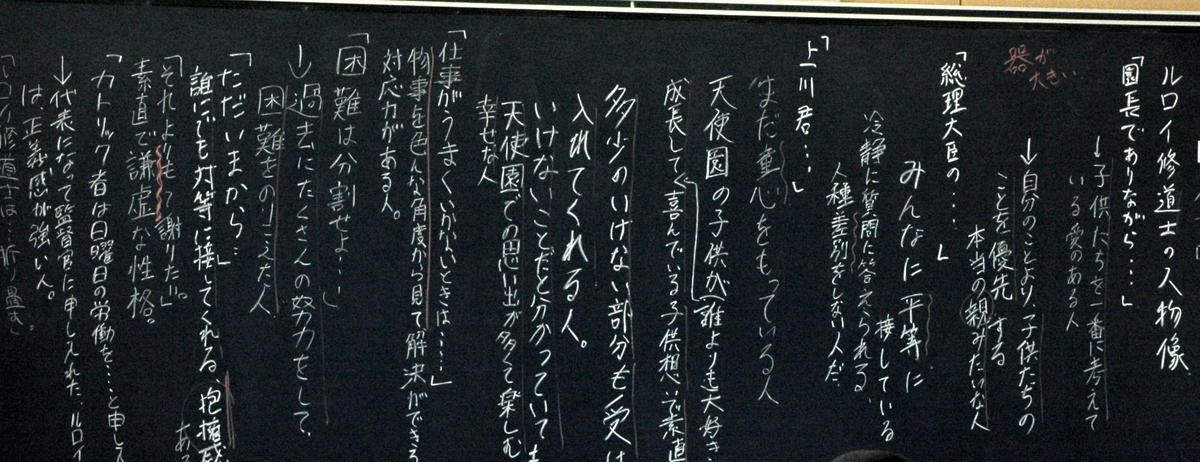 ルロイ修道士の人物像
「園長でありながら・・・・」
↓子供たちを一番に考えて
いる愛のある人
↓自分のことより、子供たちの
ことを優先する
本当の親みたいな人
器が
大きい
「総理大臣の・・・・」
みんなに平等に
接している
冷静に質問に答えられる、
人種差別をしない人だ。
「上川君・・・」
まだ童心をもっている人
天使園の子供が誰よりも大好き
成長してく喜んでいる子供想いで素直
多少のいけない部分も受け
入れてくれる人。
いけないことだと分かっていても
天使園での思い出が多くて楽しむ
幸せな人
「仕事がうまくいかないときは・・・・」
物事を色んな角度から見て解決ができる
対応力がある人。
「困難は分割せよ・・・」
↓過去にたくさんの努力をして、
困難をのりこえた人
「ただいまから・・」
誰にでも対等に接してくれる、抱擁感
ある
「それよりも、謝りた」
素直で謙虚な性格。
「カトリック者は日曜日の労働を・・・・と申しえ
↓代表になって監督官に申し入れた、ルロイ
は正義感が強い人。